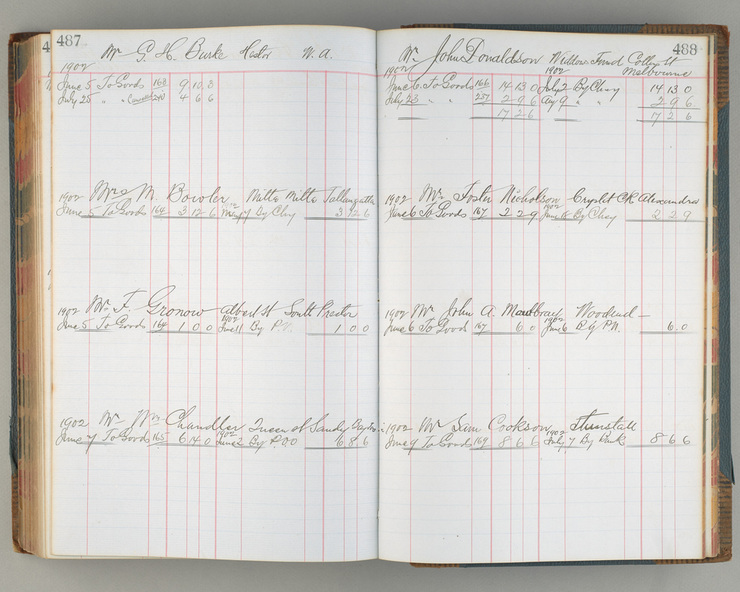 487
Mr G. H. Burke Hester W. A.
1902
June 5 To Goods 163 9 10 3
July 25 " " 4 6 6
1902 Mrs M. Bowler Mitta Mitta Tallangatta
June 5 To Goods 164 3 12 6 By Chq 3 12 6
1902 Mr F. Gronow Albert St South Preston
1902
June 5 To Goods 164 1 0 0 June 11 By P.N. 1 0 0
1902 Mr Wm Chandler Queen St Sandy
1902
June 7 To Goods 165 6 14 0 June 2 By P.O.O 6 8 6
488
Mr John Donaldson Collins St
1902 1902 Melbourne
June 6 To Goods 166 14 13 0 July 2 By Chq 14 13 0
July 23 " " 237 2 9 6 Aug 9 " " 2 9 6
17 2 6 17 2 6
1902 Mr Foster Nicholson Crystal Ck Alexandra
1902
June 6 To Goods 167 2 2 9 June 18 By Chq 2 2 9
1902 Mr John A. Woodend
1902
June 6 To Goods 167 6 0 June 6 By P.N. 6 0
1902 Mr Sim Cookson Tunstall
1902
June 9 To Goods 169 8 6 6 July 7 By Bank 8 6 6